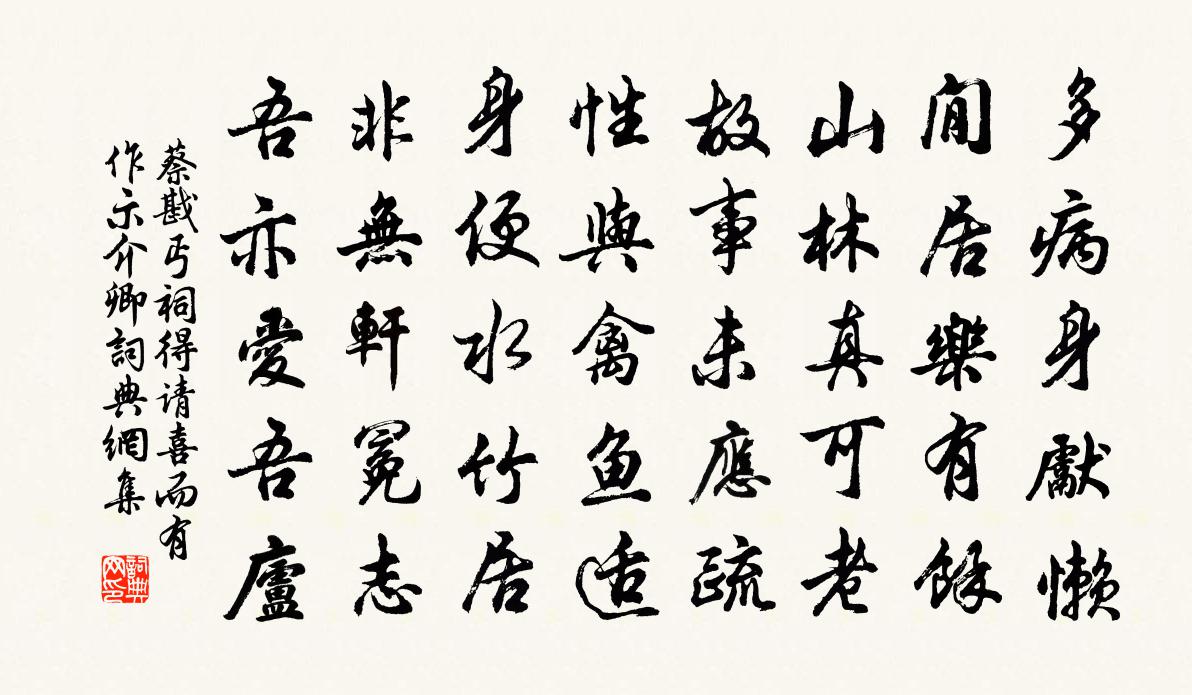 多病身獻懒
閒居樂有餘
山林真可老
故事未應疏
性與禽鱼适
身便水竹居
非無軒冕志
吾亦愛吾廬
蔡戡丐祠得请喜而有
作示介卿詞典網集
詞典网印